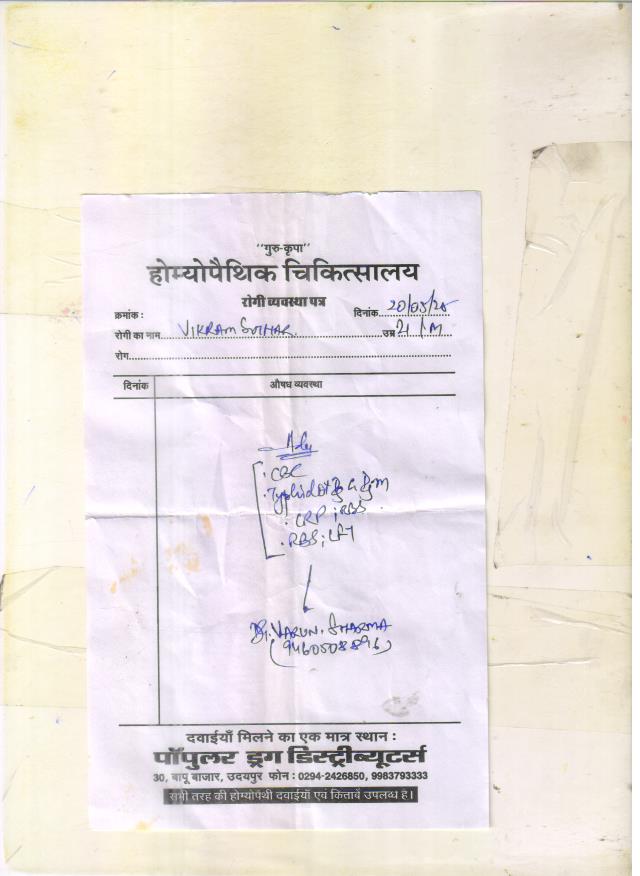 "गुरु-कृपा"
होम्योपैथिक चिकित्सालय
रोगी व्यवस्था पत्र
क्रमांक :
दिनांक 20/05/25
रोगी का नाम VIKRAM SUTHAR. उम्र 21 / M
रोग
दिनांक औषध व्यवस्था
Adv
. CBC
. Typhidot IgG IgM
. CRP ;
. RBS ; LFT
Dr. VARUN. SHARMA
(9460508896)
दवाईयाँ मिलने का एक मात्र स्थान :
पॉपुलर ड्रग डिस्ट्रीब्यूटर्स
30, बापू बाजार, उदयपुर फोन : 0294-2426850, 9983793333
सभी तरह की होम्योपैथी दवाईयाँ एवं किताबें उपलब्ध है।